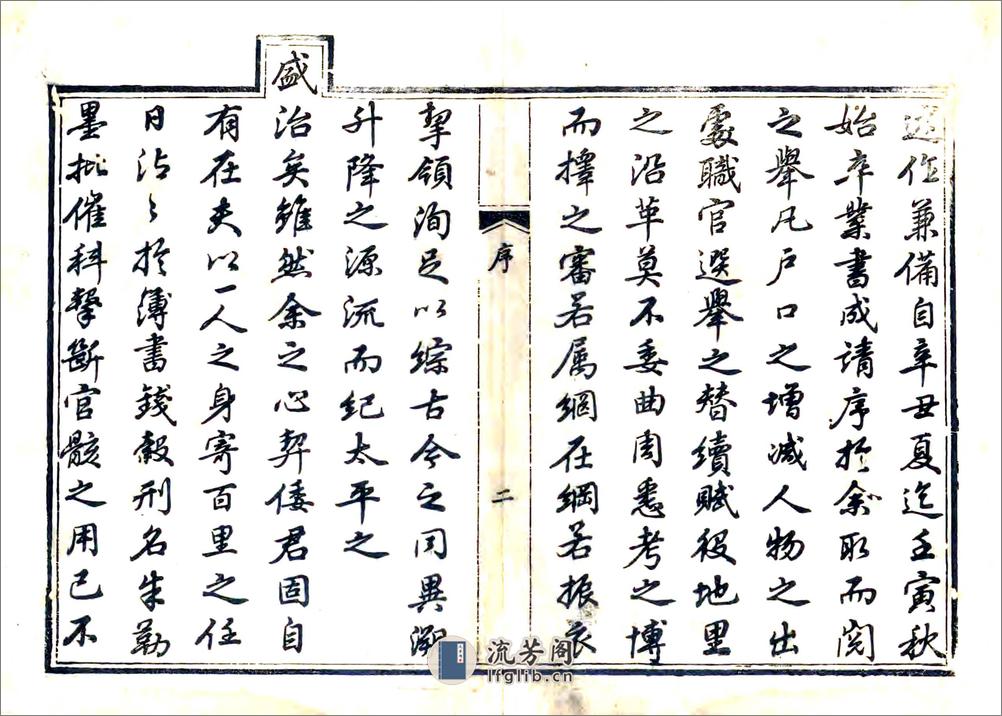 述作兼備自辛丑夏迄壬寅秋
始卒業書成請序於余取而閱
之舉凡戶口之增減人物之出
處職官選舉之替續賦役地里
之沿革莫不委曲周悉考之博
而擇之審若属網在綱若振衣
序
二
挈領洵足以綜古今之同異溯
升降之源流而紀太平之
盛治矣雖然余之心契倭君固自
有在夫以一人之身寄百里之任
日沾々於簿書錢穀刑名朱勒
墨批催科擊斷官骸之用已不
流芳阁
lfglib.cn